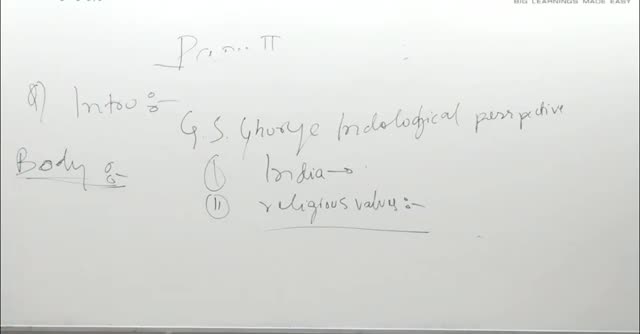 BIG LEARNINGS MADE EASY
II
Q) Intro :-
G. S. Ghurye Indological perspective
Body :-
(I) India →
(II) religious values :-